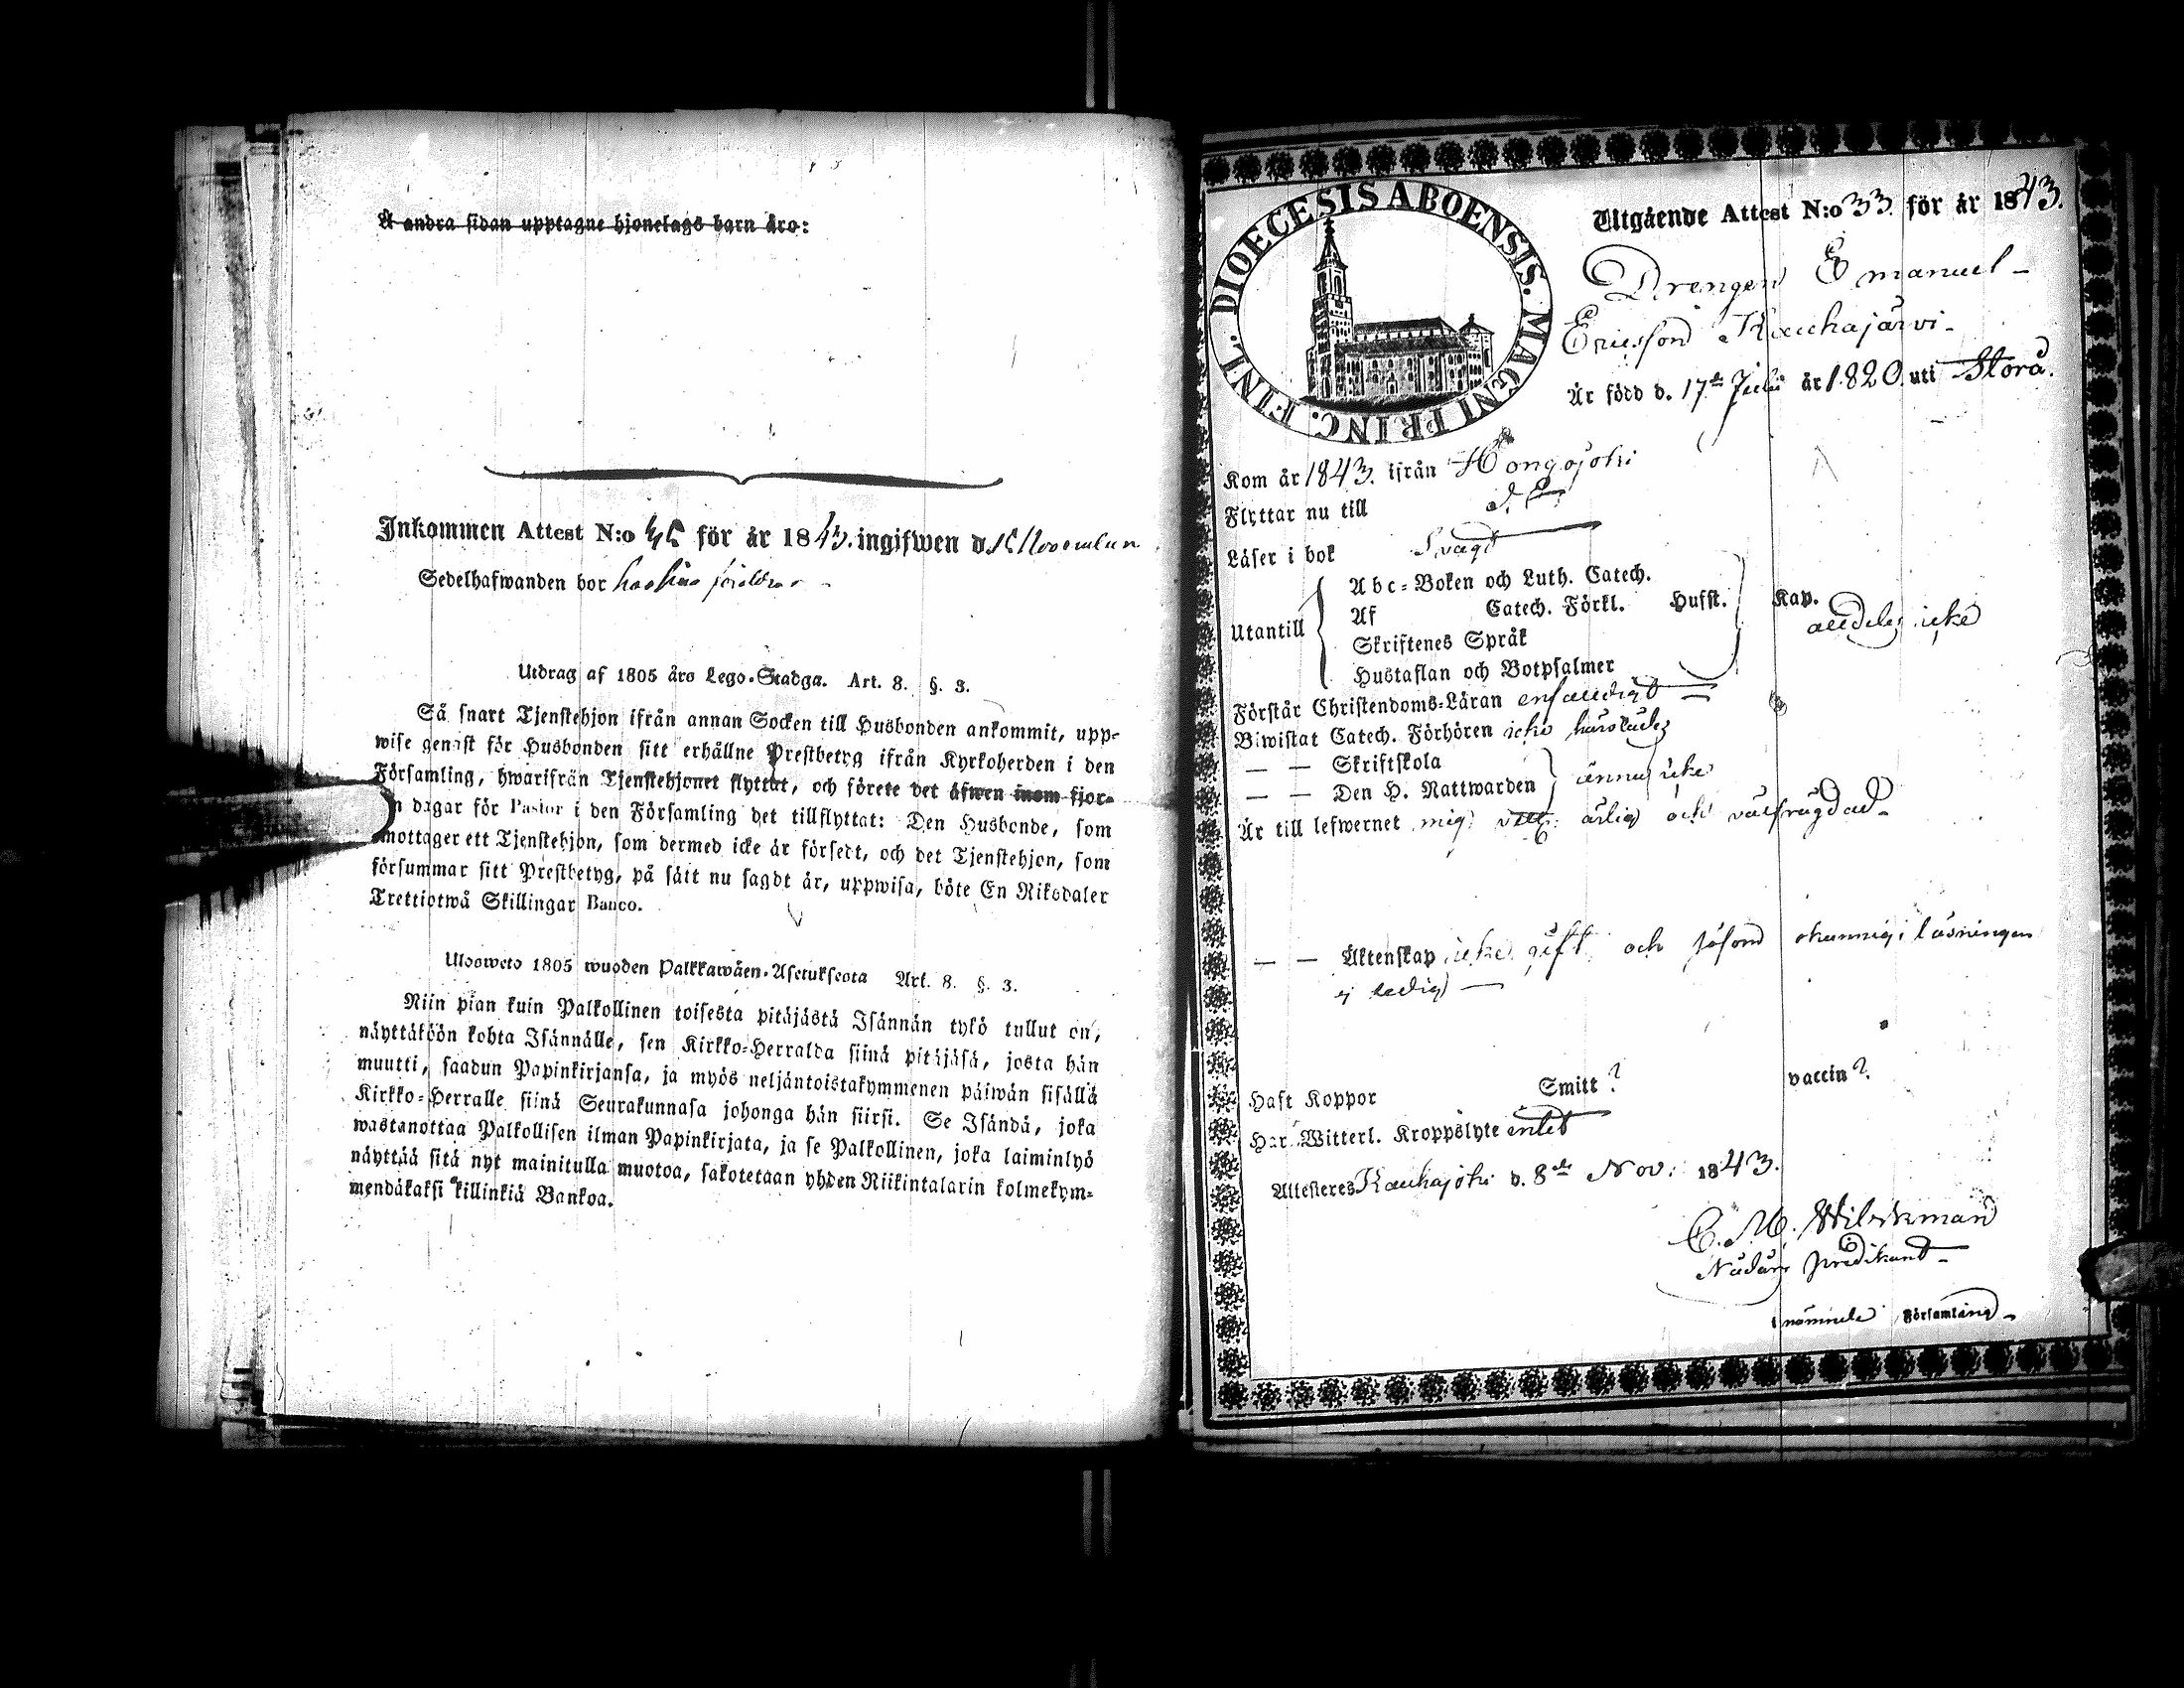 Å andra sidan upptagne hjonelags barn äro:
Inkommen Attest N:o för år 1843. ingifwen d. November
Sedelhafwanden bor hos sina föräldrar
Utdrag af 1805 års Lego-Stadga. Art. 8. §. 3.
Så snart Tjenstehjon ifrån annan Socken till Husbonden ankommit, upp-
wise genast för Husbonden sitt erhållne Prestbetyg ifrån Kyrkoherden i den
Församling, hwarifrån Tjenstehjonet flyttat, och förete det äfwen inom fjor-
n dagar för Pastor i den Församling det tillflyttat: Den Husbonde, som
mottager ett Tjenstehjon, som dermed icke är försedt, och det Tjenstehjon, som
försummar sitt Prestbetyg, på sätt nu sagdt är, uppwisa, böte En Riksdaler
Trettiotwå Skillingar Banco.
Ulosweto 1805 wuoden Palkkawäen-Asetuksesta Art. 8. §. 3.
Niin pian kuin Palkollinen toisesta pitäjästä Isännän tykö tullut on,
näyttäköön kohta Isännälle, sen Kirkko-Herralda siinä pitäjäsä, josta hän
muutti, saadun Papinkirjansa, ja myös neljäntoistakymmenen päiwän sisällä
Kirkko-Herralle siinä Seurakunnasa johonga hän siirsi. Se Isändä, joka
wastanottaa Palkollisen ilman Papinkirjata, ja se Palkollinen, joka laiminlyö
näyttää sitä nyt mainitulla muotoa, sakotetaan yhden Riikintalarin kolmekym-
mendäkaksi killinkiä Bankoa.
DIOECESIS ABOENSIS. MAGNI PRINC. FINL.
Utgående Attest N:o 33. för år 1843.
Drengen Emanuel
Ericsson Kauhajärvi
Är född d. 17de Julii år 1820. uti Storå.
Kom år 1843. ifrån Hongojoki
Flyttar nu till d.o
Läser i bok Svagt
Abc-Boken och Luth. Catech.
Utantill Af Catech. Förkl. Husst. Kap. alldeles icke
Skriftenes Språk
Hustaflan och Botpsalmer
Förstår Christendoms-Läran enfaldigt
Biwistat Catech. Förhören icke härstädes
— — Skriftskola
— — Den H. Nattwarden ännu icke
Är till lefwernet mig vitt. ärlig och välfrägdad
— — Äktenskap icke gift och såsom okunnig i läsningen
ej ledig
Haft Koppor Smitt? vaccin?
Har Witterl. Kroppslyte intet
Attesteres Kauhajoki d. 8de Nov: 1843.
C. M. Wilskman
Nådårs predikant
i nämnde Församling